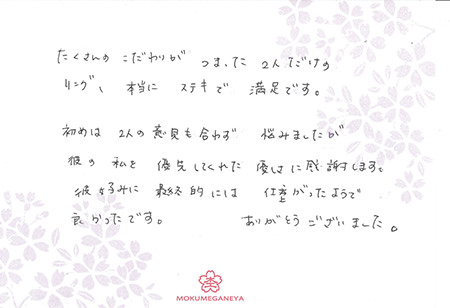 たくさんの こだわりが つまった 2人だけの
リング、 本当に ステキで 満足です。
初めは 2人の意見も合わず 悩みましたが
彼の 私を 優先してくれた 優しさに感謝します。
彼好みに 最終的には 仕上がったようで
良かったです。 ありがとうございました。
MOKUMEGANEYA